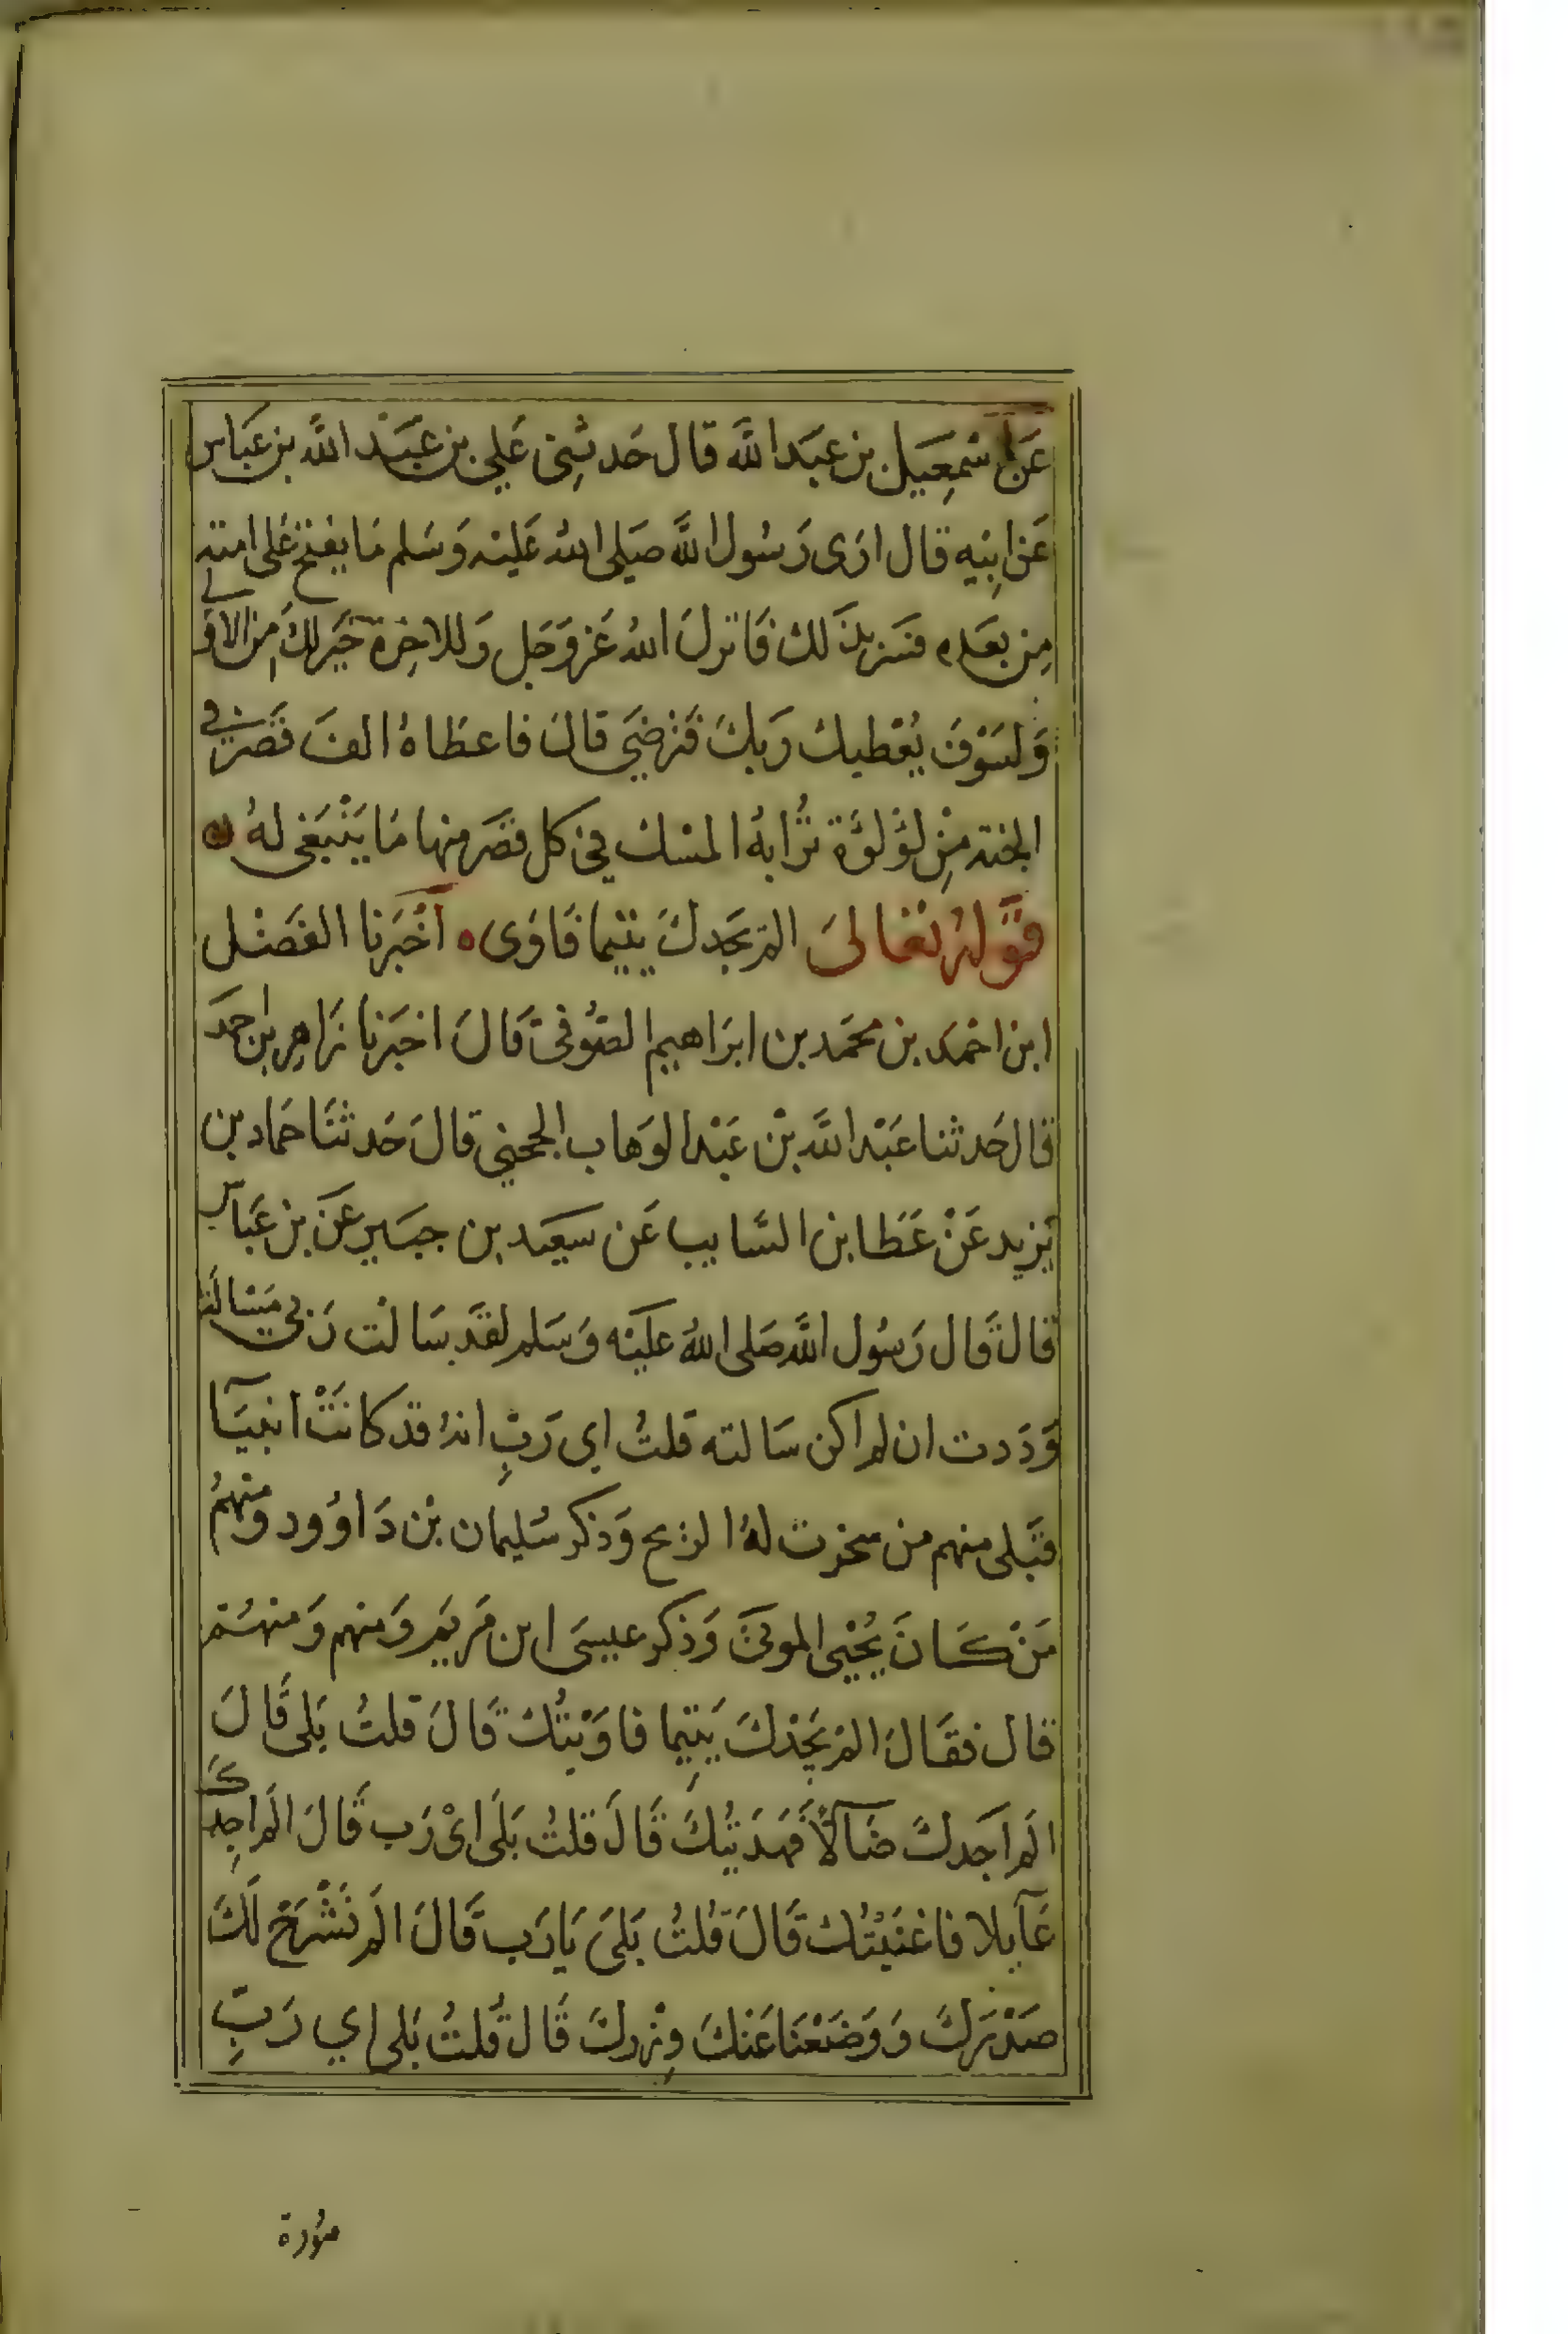 عَن اسْمعِيَل بن عبَد الله قال حَدثِنى عَلي بن عبَيْد الله بن عَبَاس
عَن ابِيه قال ارَى رَسُول الله صَلى اللهُ عَليْه وَسَلم مَا يفتح عَلى امته
مِن بعَده فسَر بذَلك فَانزلَ اللهُ عَز وَجَل وَللاخِرة خَيَر لكَ مِن الاولى
وَلسَوْفَ يُعْطيك رَبكَ فَترضَى قالَ فاعطَاهُ الفَ قصَر في
الجنة مِنْ لؤلؤة تُرابهُ المسْك في كل قصَر منها مَا يَنْبَغى لهُ
قوَلهُ تعَالىَ الم يَجدكَ يتيما فَاوَى أخْبَرنا الفَضْل
ابن احْمَد بن محمَد بن ابرَاهيم الصُوفى قَالَ اخبَرنا زاهِر بن احمَد
قال حَدثنا عَبْد الله بْن عَبْد الوَهاب الجمحي قالَ حَدثنَا حَماد بن
يَزيد عَنْ عَطَا بن السَايب عَن سَعيَد بن جبَير عَن بن عَباس
قال قَال رَسُول الله صَلى اللهُ عليَه وَسَلم لقَد سَالْت رَبي مَسْالة
وَدَدت ان لم اكن سَالته قلتُ اي رَبِ انهُ قد كانَتْ انبيَآ
قبَلى منهم من سخرت لهُ الريح وَذكر سُليمان بْن دَاوُود وَمنهمُ
مَنْ كَانَ يُحْيى الموتىَ وَذكر عيسَى ابن مَريَم وَمنهم وَمنهُم
قال فقَالَ المْ يَجْدكَ يَتِيما فاوَيْتُكَ قَالَ قلتُ بَلى قَالَ
الَم اَجَدكَ ضَآلًا فَهَدَيتُكَ قَالَ قلتُ بَلَى ايْ رَب قَالَ الَم اجِدكَ
عَآيلا فاغنَيْتُكَ قَالَ قُلتُ بَلىَ يَارَب قَالَ الَم نَشْرَحْ لَكَ
صَدْرَكَ وَوَضَعْنَا عَنكَ وِزْركَ قَال قُلتُ بَلى اي رَبِ
سُورة